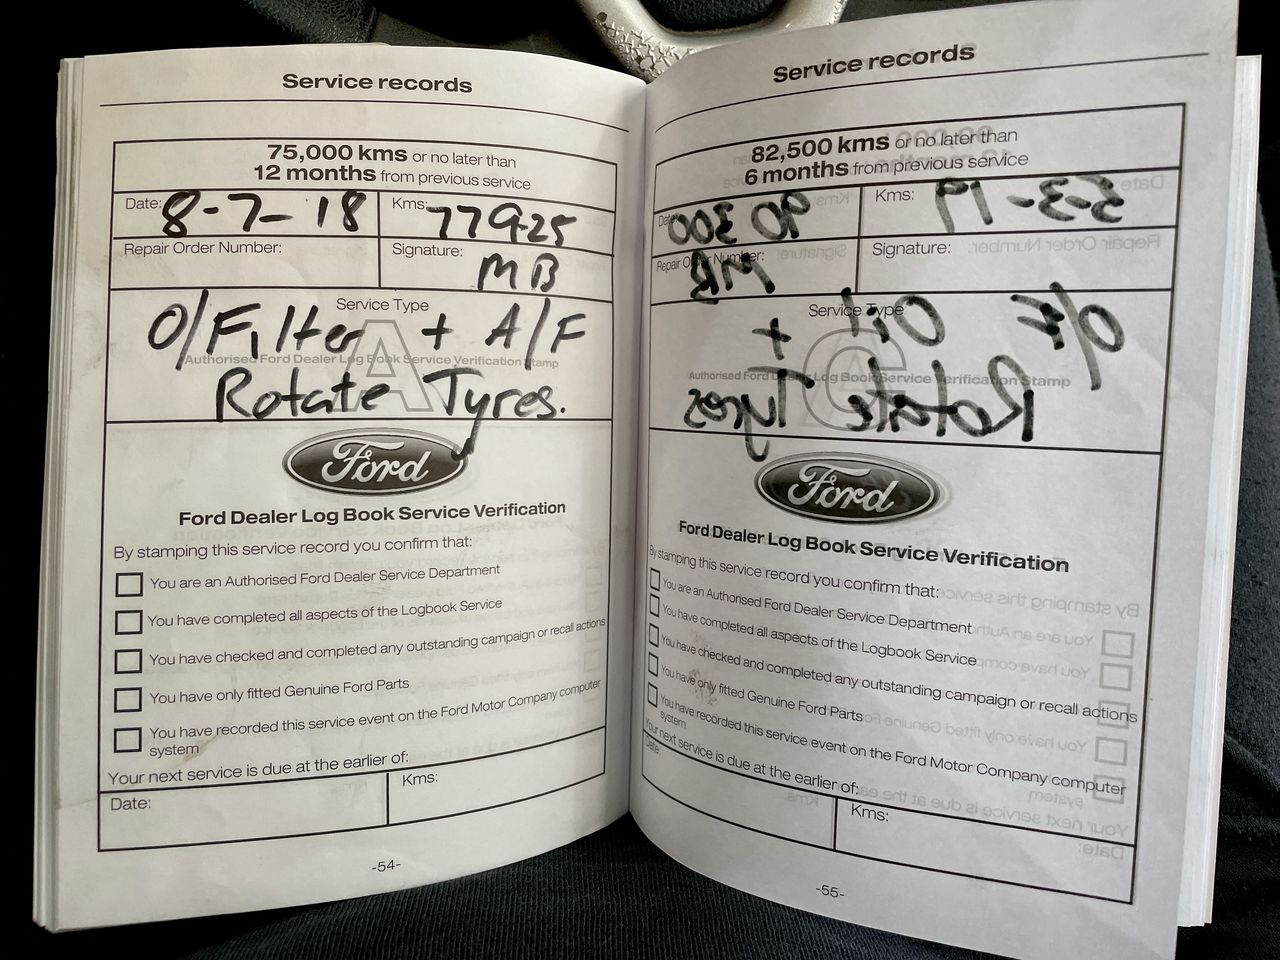 Service records
75,000 kms or no later than
12 months from previous service
Date: 8-7-18
Kms: 77925
Repair Order Number:
Signature: MB
Service Type
O/Filter + A/F
A
Authorised Ford Dealer Log Book Service Verification Stamp
Rotate Tyres.
Ford
Ford Dealer Log Book Service Verification
By stamping this service record you confirm that:
You are an Authorised Ford Dealer Service Department
You have completed all aspects of the Logbook Service
You have checked and completed any outstanding campaign or recall actions
You have only fitted Genuine Ford Parts
You have recorded this service event on the Ford Motor Company computer
system
Your next service is due at the earlier of:
Date:
Kms:
-54-
Service records
82,500 kms or no later than
6 months from previous service
Date:
Kms:
5-3-19
90300
Repair Order Number:
Signature:
MB
Service Type
O/F Oil +
C
Authorised Ford Dealer Log Book Service Verification Stamp
Rotate Tyres
Ford
Ford Dealer Log Book Service Verification
By stamping this service record you confirm that:
You are an Authorised Ford Dealer Service Department
You have completed all aspects of the Logbook Service
You have checked and completed any outstanding campaign or recall actions
You have only fitted Genuine Ford Parts
You have recorded this service event on the Ford Motor Company computer
system
Your next service is due at the earlier of:
Date:
Kms:
-55-